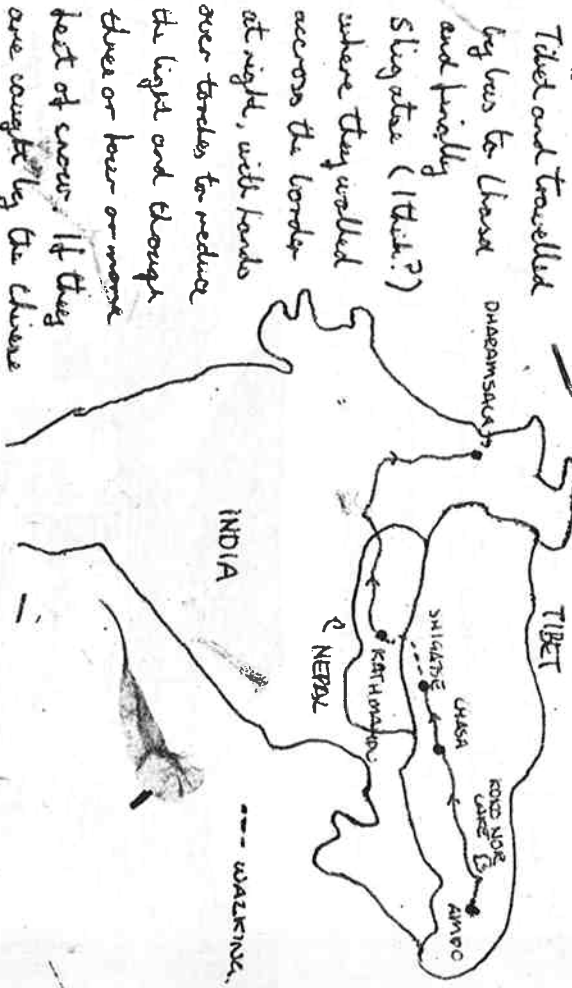 Tibet and travelled
by bus to Lhasa
and finally
Shigatse (I think?)
where they walked
accross the border
at night, with hands
over torches to reduce
the light and though
three or four or more
feet of snow. If they
are caught by the Chinese
DHARAMSALA
TIBET
KOKO NOR
LAKE
AMDO
LHASA
SHIGATSE
KATHMANDU
NEPAL
INDIA
--- WALKING.